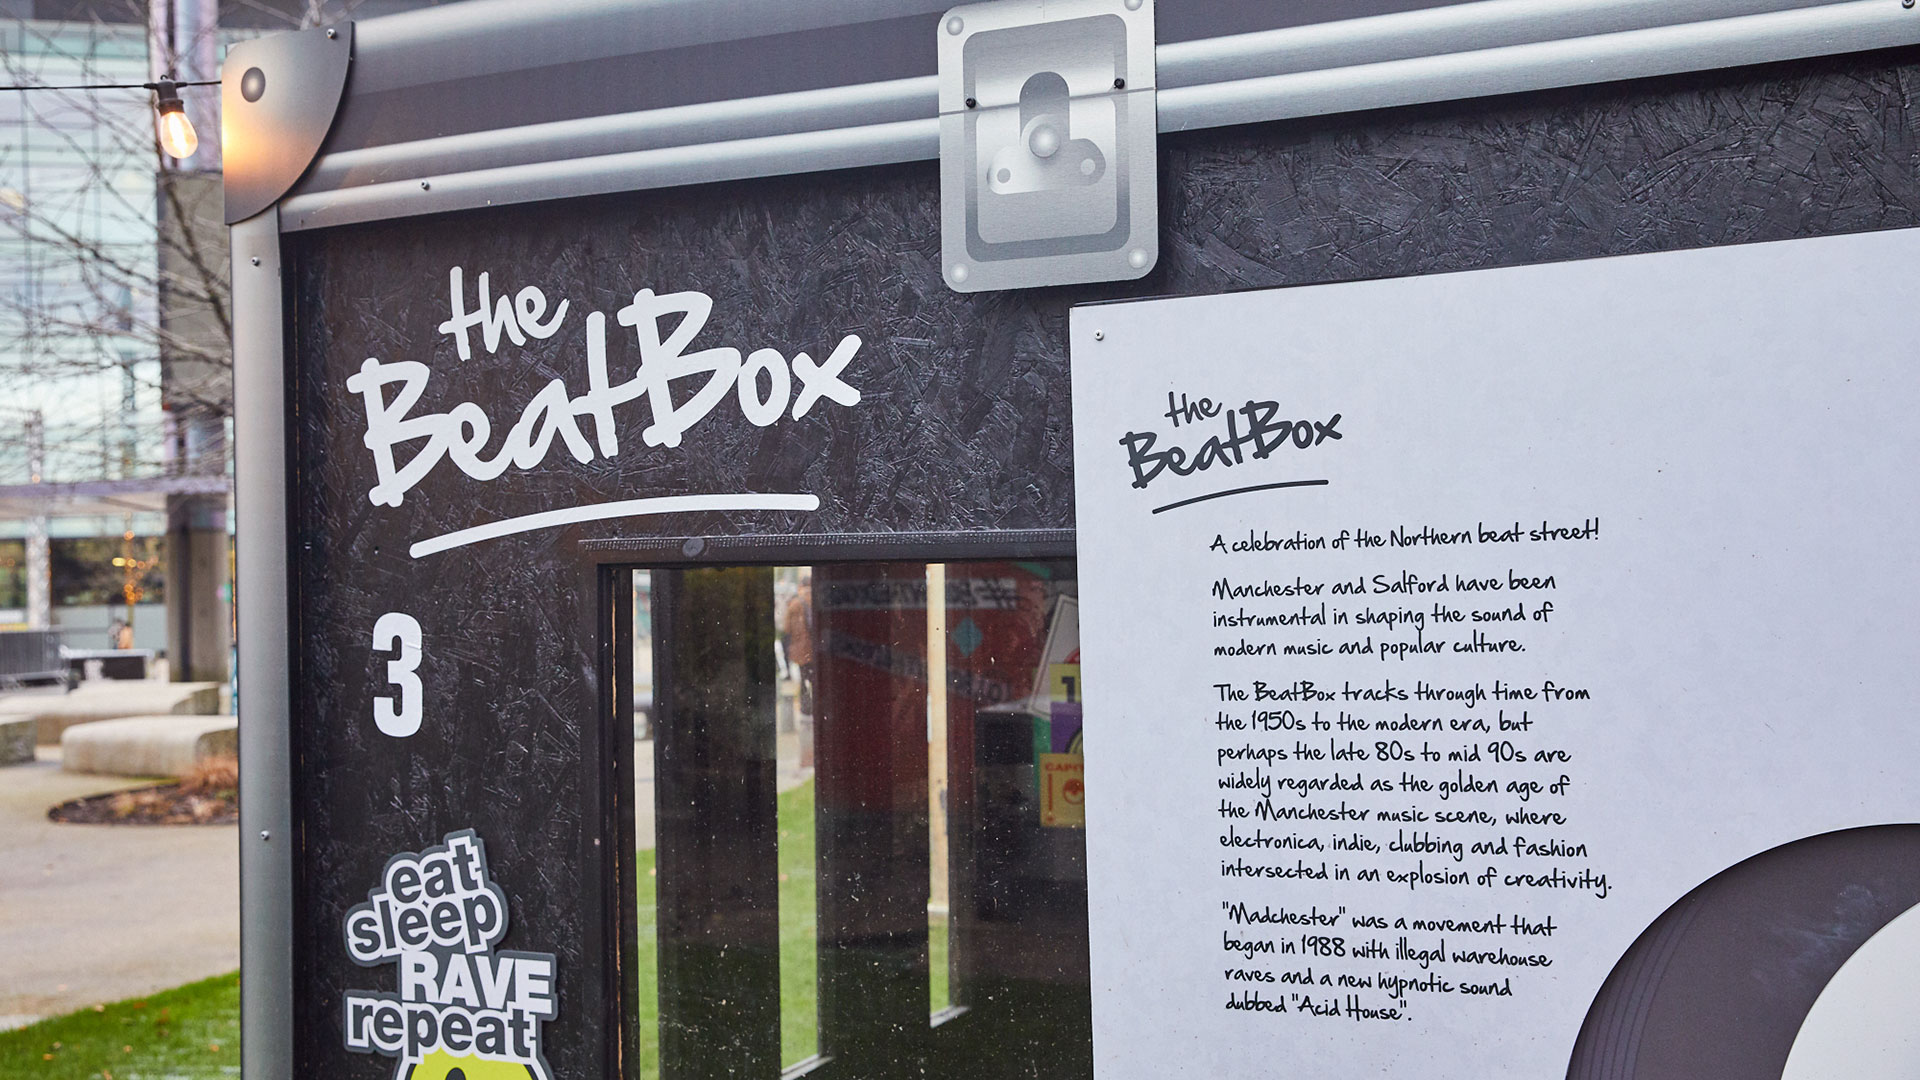 the
BeatBox
3
eat
sleep
RAVE
repeat
the
BeatBox
A celebration of the Northern beat street!
Manchester and Salford have been
instrumental in shaping the sound of
modern music and popular culture.
The BeatBox tracks through time from
the 1950s to the modern era, but
perhaps the late 80s to mid 90s are
widely regarded as the golden age of
the Manchester music scene, where
electronica, indie, clubbing and fashion
intersected in an explosion of creativity.
"Madchester" was a movement that
began in 1988 with illegal warehouse
raves and a new hypnotic sound
dubbed "Acid House".